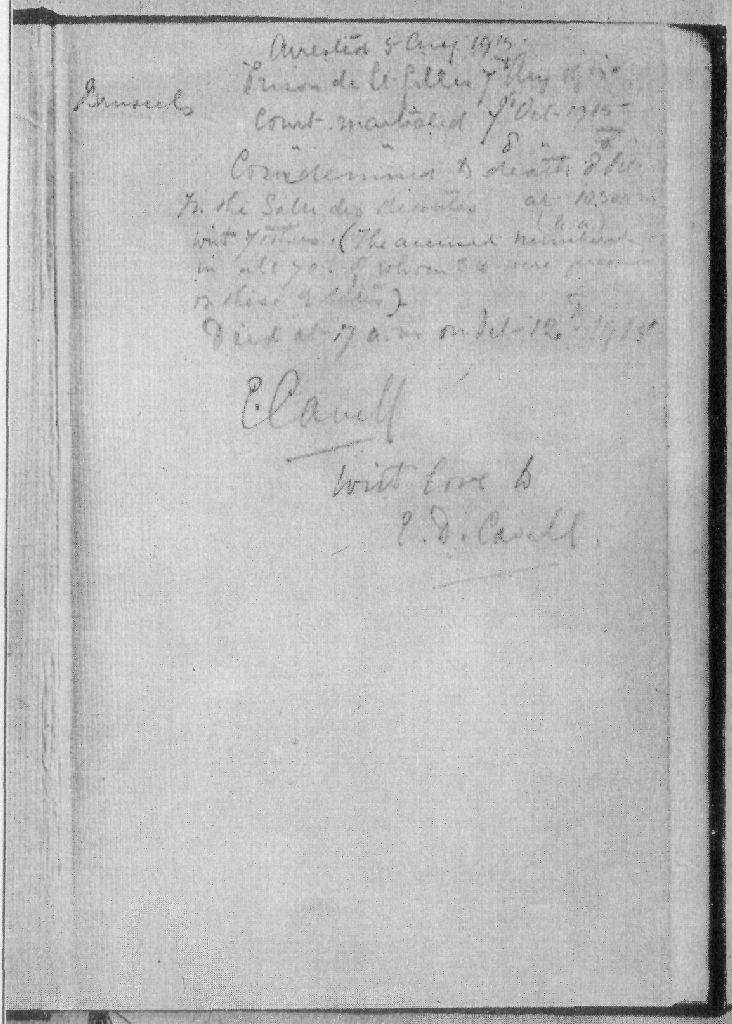 Arrested 5 Aug 1915.
Brussels
Prison de St Gilles 7th Aug 1915
Court-martialed 7th Oct 1915
Condemned to death 8th Oct
In the Salle des députés at 10.30 a.m
with 7 others. (The accused numbered
in all 70 of whom were
on these dates)
Died at 7 a.m on Oct 12th 1915
E. Cavell
With love to
E. D. Cavell.